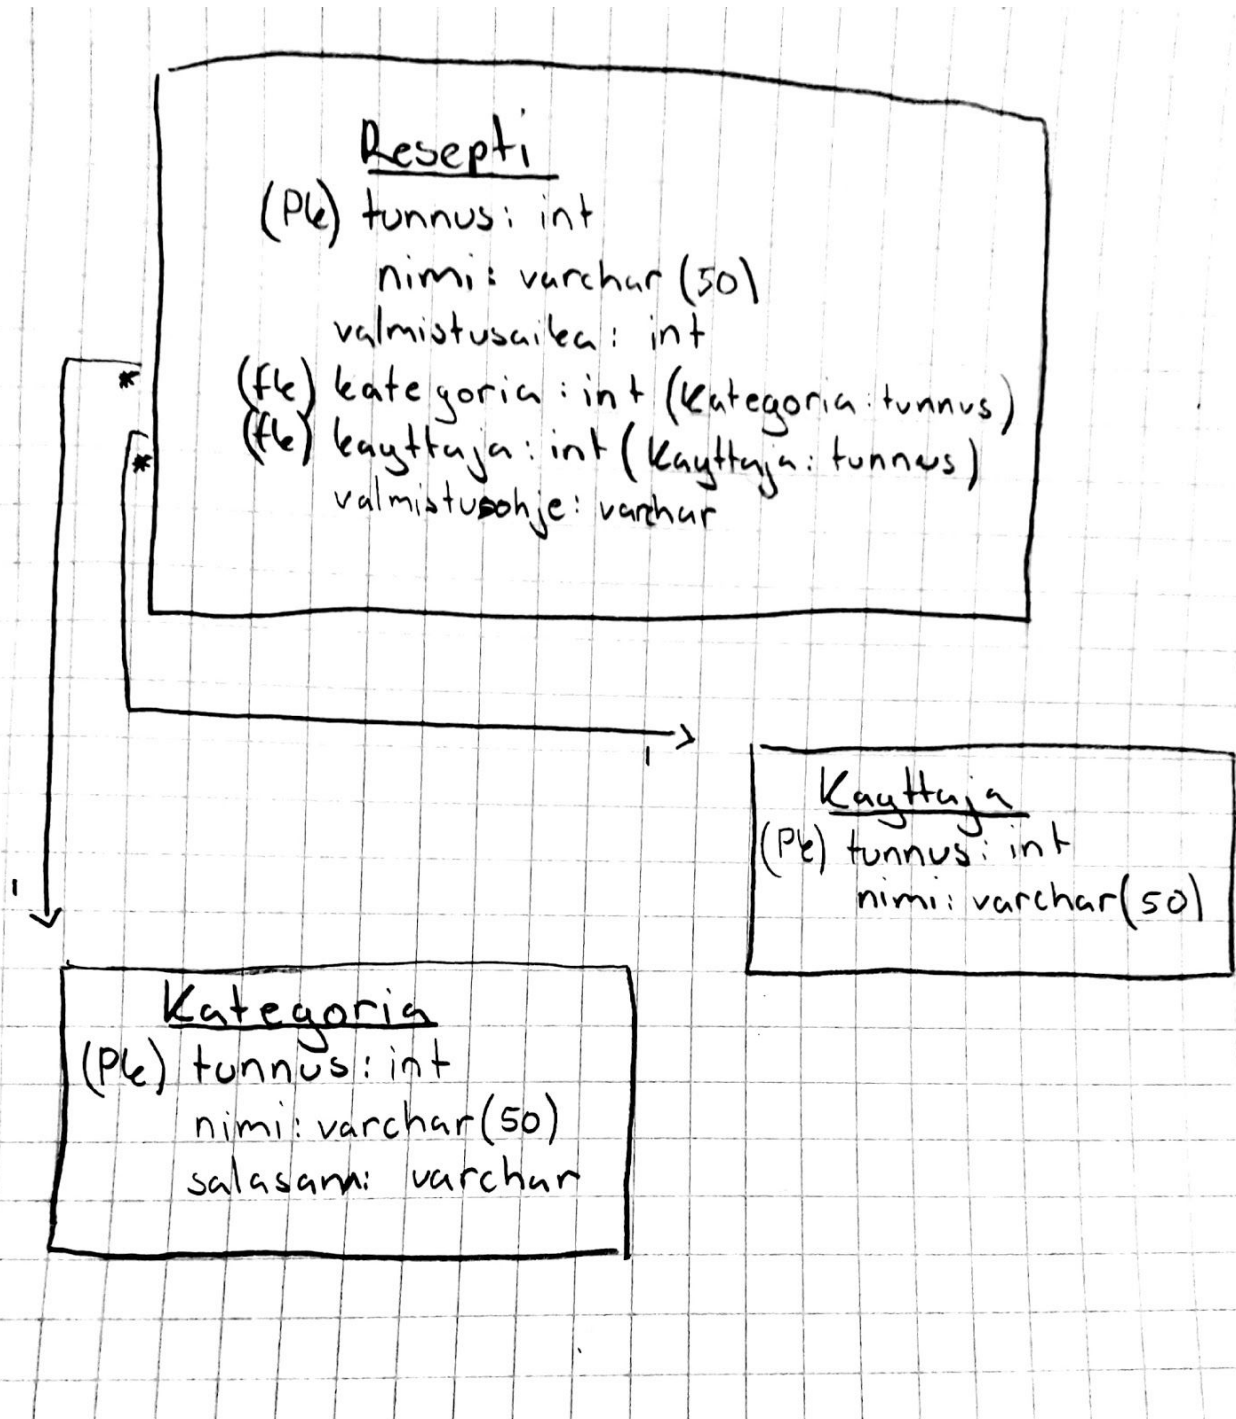 Resepti
(Pk) tunnus: int
nimi: varchar (50)
valmistusaika: int
* (fk) kategoria: int (Kategoria:tunnus)
* (fk) kayttaja: int (Kayttaja: tunnus)
valmistusohje: varchar
1
Kayttaja
(Pk) tunnus: int
nimi: varchar(50)
1
Kategoria
(Pk) tunnus: int
nimi: varchar(50)
salasana: varchar